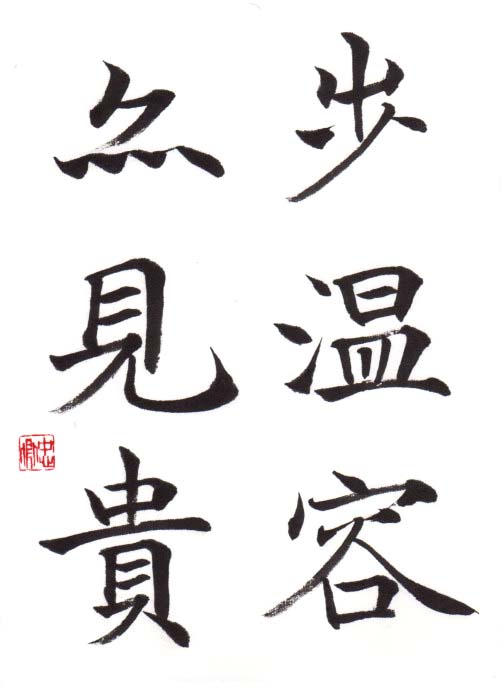 步温容
見貴